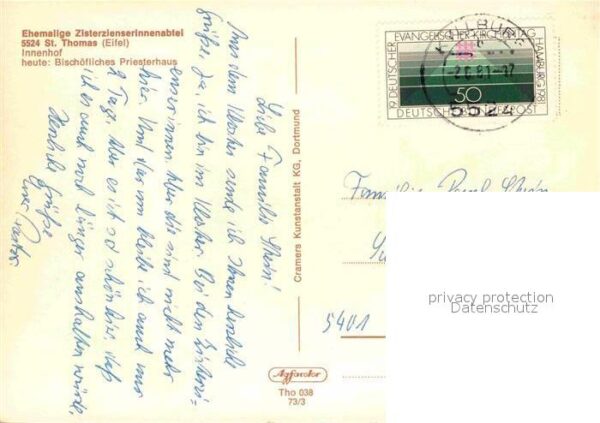 Ehemalige Zisterzienserinnenabtei
5524 St. Thomas (Eifel)
Innenhof
heute: Bischöfliches Priesterhaus
Liebe Familie
Aus dem Kloster sende ich Ihnen herzliche
Grüße. Ja, ich bin im Kloster. Bei den Zisterzi-
enserinnen. Aber die sind nicht mehr
hier. Und hier bleibe ich auch nur
2 Tage. Aber es ist so schön hier, daß
ich es auch noch länger aushalten würde.
Herzliche Grüße
Cramers Kunstanstalt KG, Dortmund
19. DEUTSCHER EVANGELISCHER KIRCHENTAG HAMBURG 1981
50
DEUTSCHE BUNDESPOST
KYLLBURG
-2.6.81-17
5524
Familie
5401
privacy protection
Datenschutz
Agfacolor
Tho 038
73/3